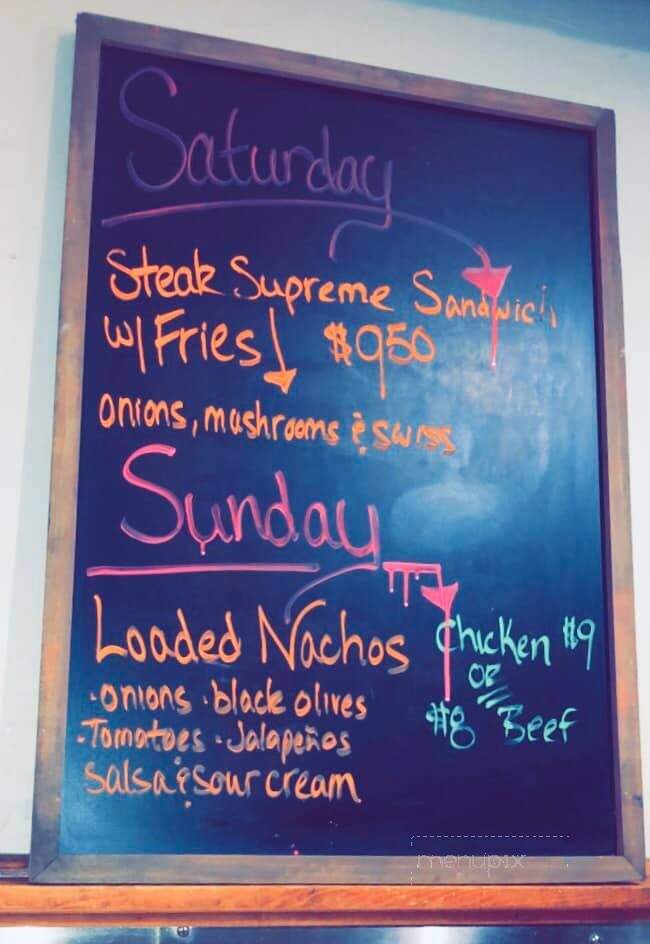 Saturday
Steak Supreme Sandwich
w/ Fries $950
onions, mushrooms & swiss
Sunday
Loaded Nachos
·onions ·black olives
·Tomatoes ·Jalapeños
Salsa & sour cream
Chicken $9
OR
$8 Beef
menupix